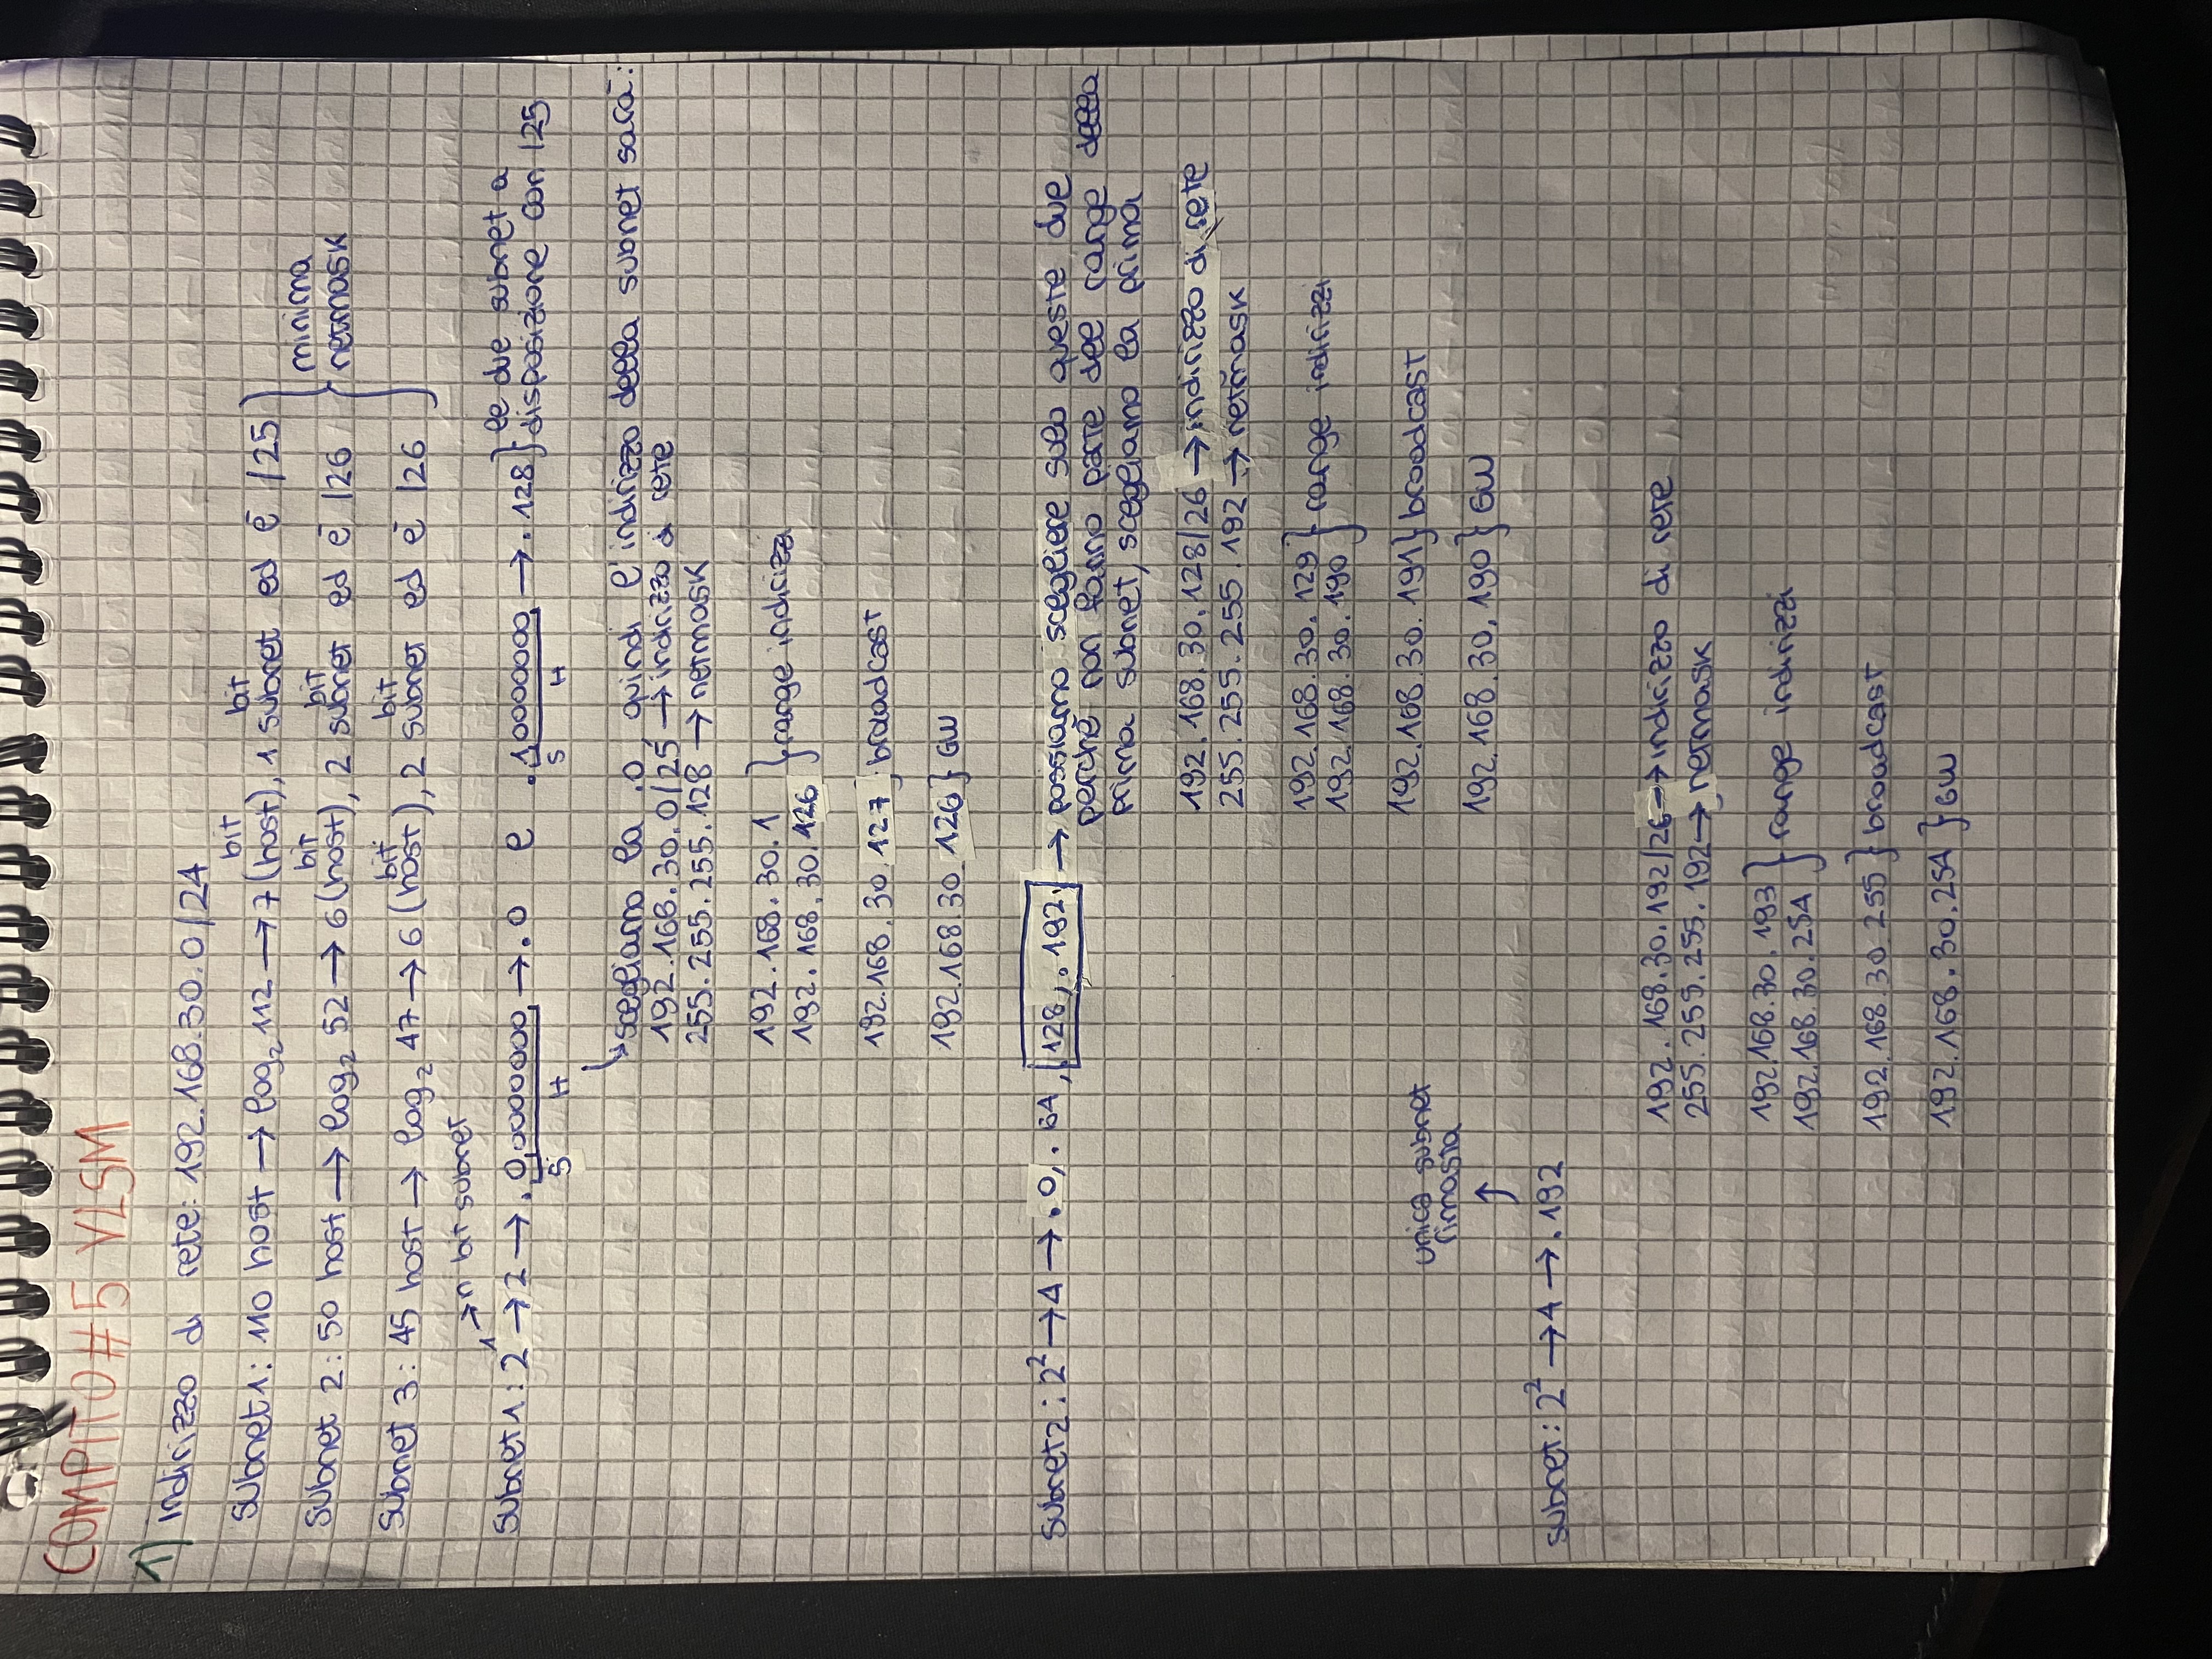 COMPITO #5 VLSM
1) indirizzo di rete: 192.168.30.0/24
subnet 1: 110 host → log₂ 112 → 7 bit (host), 1 bit subnet ed è /25
subnet 2: 50 host → log₂ 52 → 6 bit (host), 2 bit subnet ed è /26
subnet 3: 45 host → log₂ 47 → 6 bit (host), 2 bit subnet ed è /26
} minima netmask
→ n bit subnet
subnet 1: 2¹ → 2 → .0,0000000, → .0 e .1,0000000, → .128 } le due subnet a disposizione con /25
S H S H
↳ scegliamo la .0, quindi l'indirizzo della subnet sarà:
192.168.30.0/25 → indirizzo di rete
255.255.255.128 → netmask
192.168.30.1
192.168.30.126 } range indirizzi
192.168.30.127 } broadcast
192.168.30.126 } GW
subnet 2: 2² → 4 → .0, .64, .128, .192, → possiamo scegliere solo queste due
perché non fanno parte del range della
prima subnet, scegliamo la prima
192.168.30.128/26 → indirizzo di rete
255.255.255.192 → netmask
192.168.30.129
192.168.30.190 } range indirizzi
192.168.30.191 } broadcast
192.168.30.190 } GW
unica subnet
rimasta
↑
subnet: 2² → 4 → .192
192.168.30.192/26 → indirizzo di rete
255.255.255.192 → netmask
192.168.30.193
192.168.30.254 } range indirizzi
192.168.30.255 } broadcast
192.168.30.254 } GW